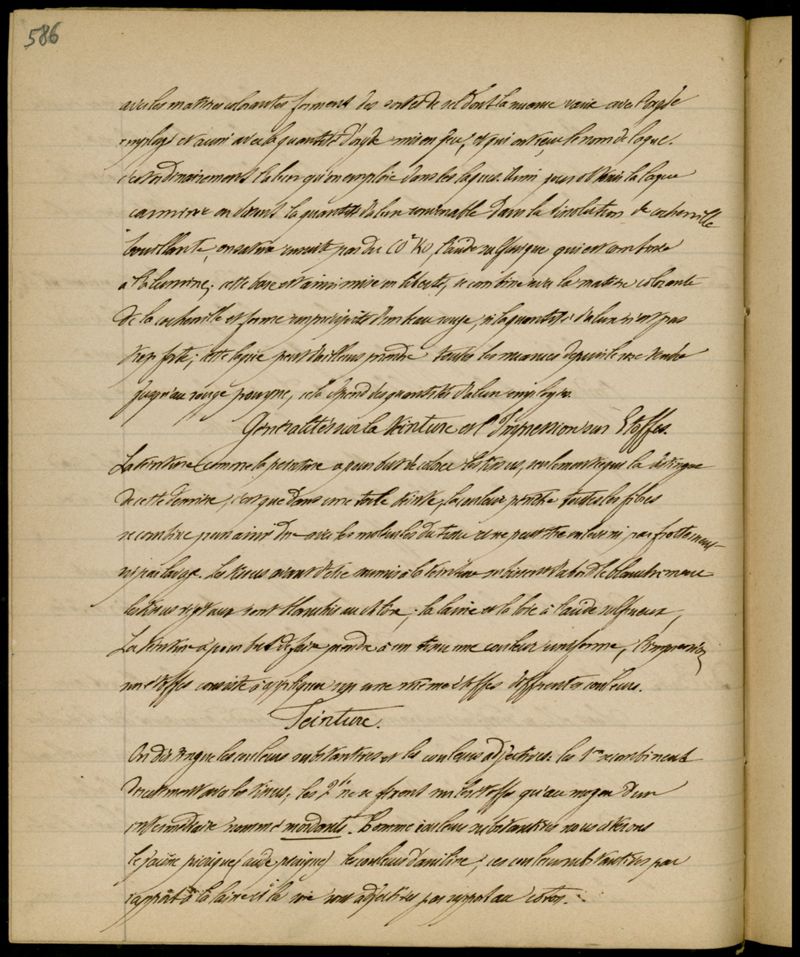 586
avec les matières colorantes forment des sortes de sel dont la nuance varie avec l'oxyde
employé et aussi avec la quantité d'oxyde mis en jeu, et qui ont reçu le nom de laque.
C'est ordinairement l'alun qu'on emploie dans les laques. Ainsi pour obtenir la laque
carminée on dissout la quantité d'alun convenable dans la dissolution de cochenille
bouillante, on sature ensuite par du CO² KO, l'acide sulfurique qui est combiné
à l'alumine; cette base est ainsi mise en liberté, se combine avec la matière colorante
de la cochenille et forme un précipité d'un beau rouge, si la quantité d'alun n'est pas
trop forte; cette laque peut d'ailleurs prendre toutes les nuances depuis le rose tendre
jusqu'au rouge pourpre, cela dépend des quantités d'alun employées.
Généralités sur la teinture et l'Impression sur Etoffes.
La teinture comme la peinture a pour but de colorer les tissus, seulement ce qui la distingue
de cette dernière, c'est que dans une toile teinte, la couleur pénètre toutes les fibres
se combine pour ainsi dire avec les molécules du tissu et ne peut être enlevée ni par frottement
ni par lavage. Les tissus avant d'être soumis à la teinture subissent d'abord le blanchiment
les tissus végétaux sont blanchis au chlore, la laine et la soie à l'acide sulfureux,
La teinture a pour but de faire prendre à un tissu une couleur uniforme, l'impression
sur étoffes consiste à appliquer sur une même étoffes différentes couleurs.
Teinture.
On distingue les couleurs substantives et les couleurs adjectives. les 1res se combinent
directement avec les tissus, les 2es ne se fixent sur les étoffes qu'au moyen d'un
intermédiaire nommé mordants. Comme couleurs substantives nous citerons
le jaune picrique (acide picrique) les couleurs d'aniline, ces couleurs substantives par
rapport à la laine et la soie sont adjectives par rapport au coton.